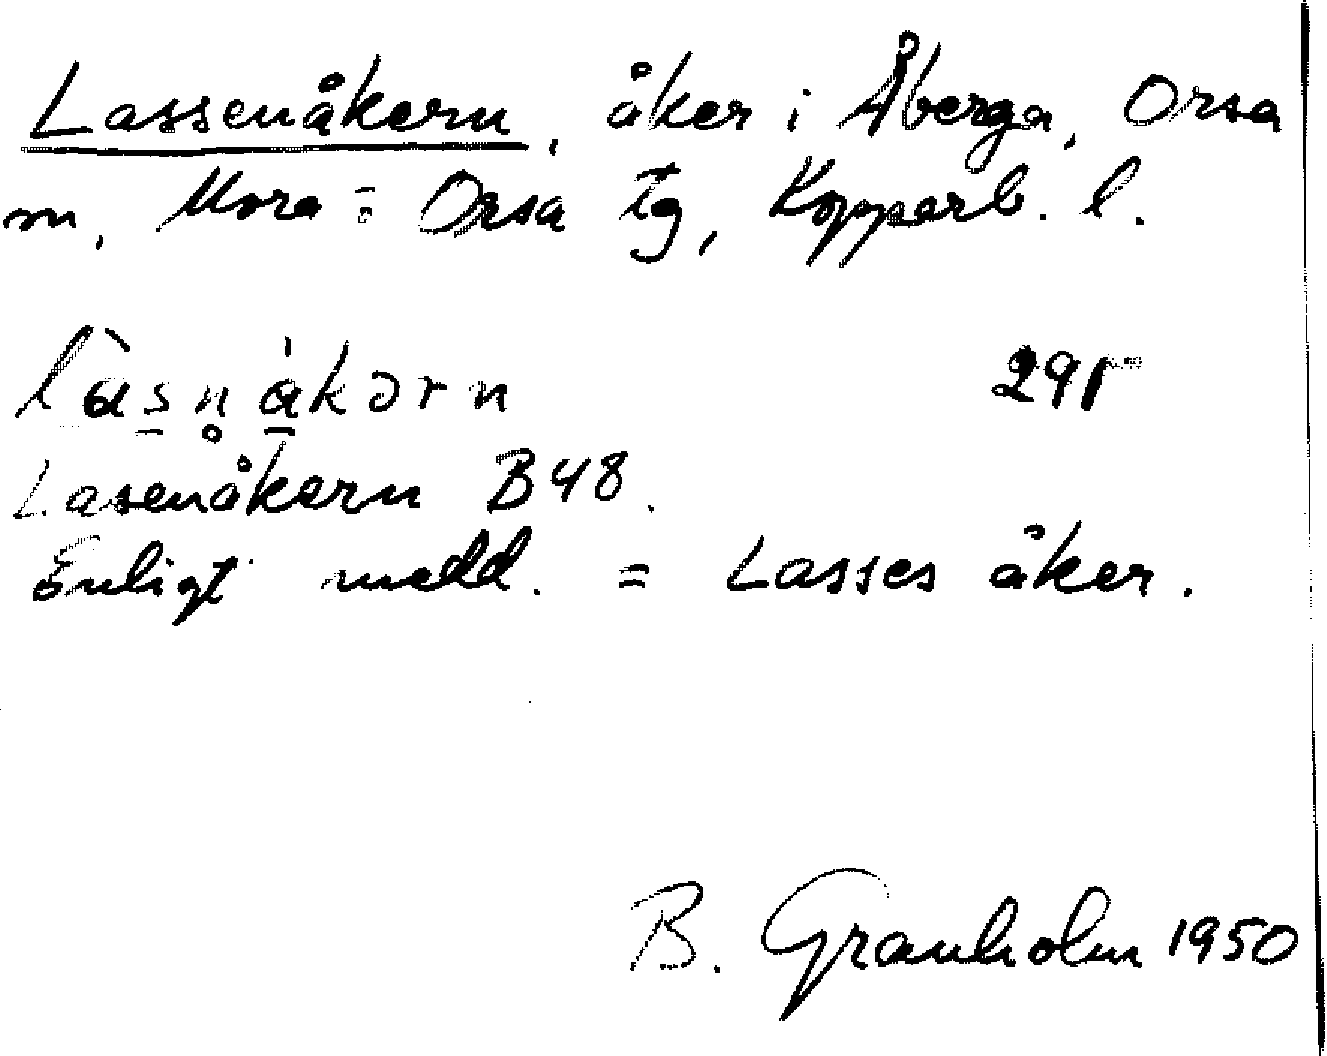 Lassenåkern, åker i Åberga, Orsa
m, Mora = Orsa tg, Kopparb. l.
làsn̥ákərn 295
Lasenåkern B48.
Enligt medd. = Lasses åker.
B. Granholm 1950